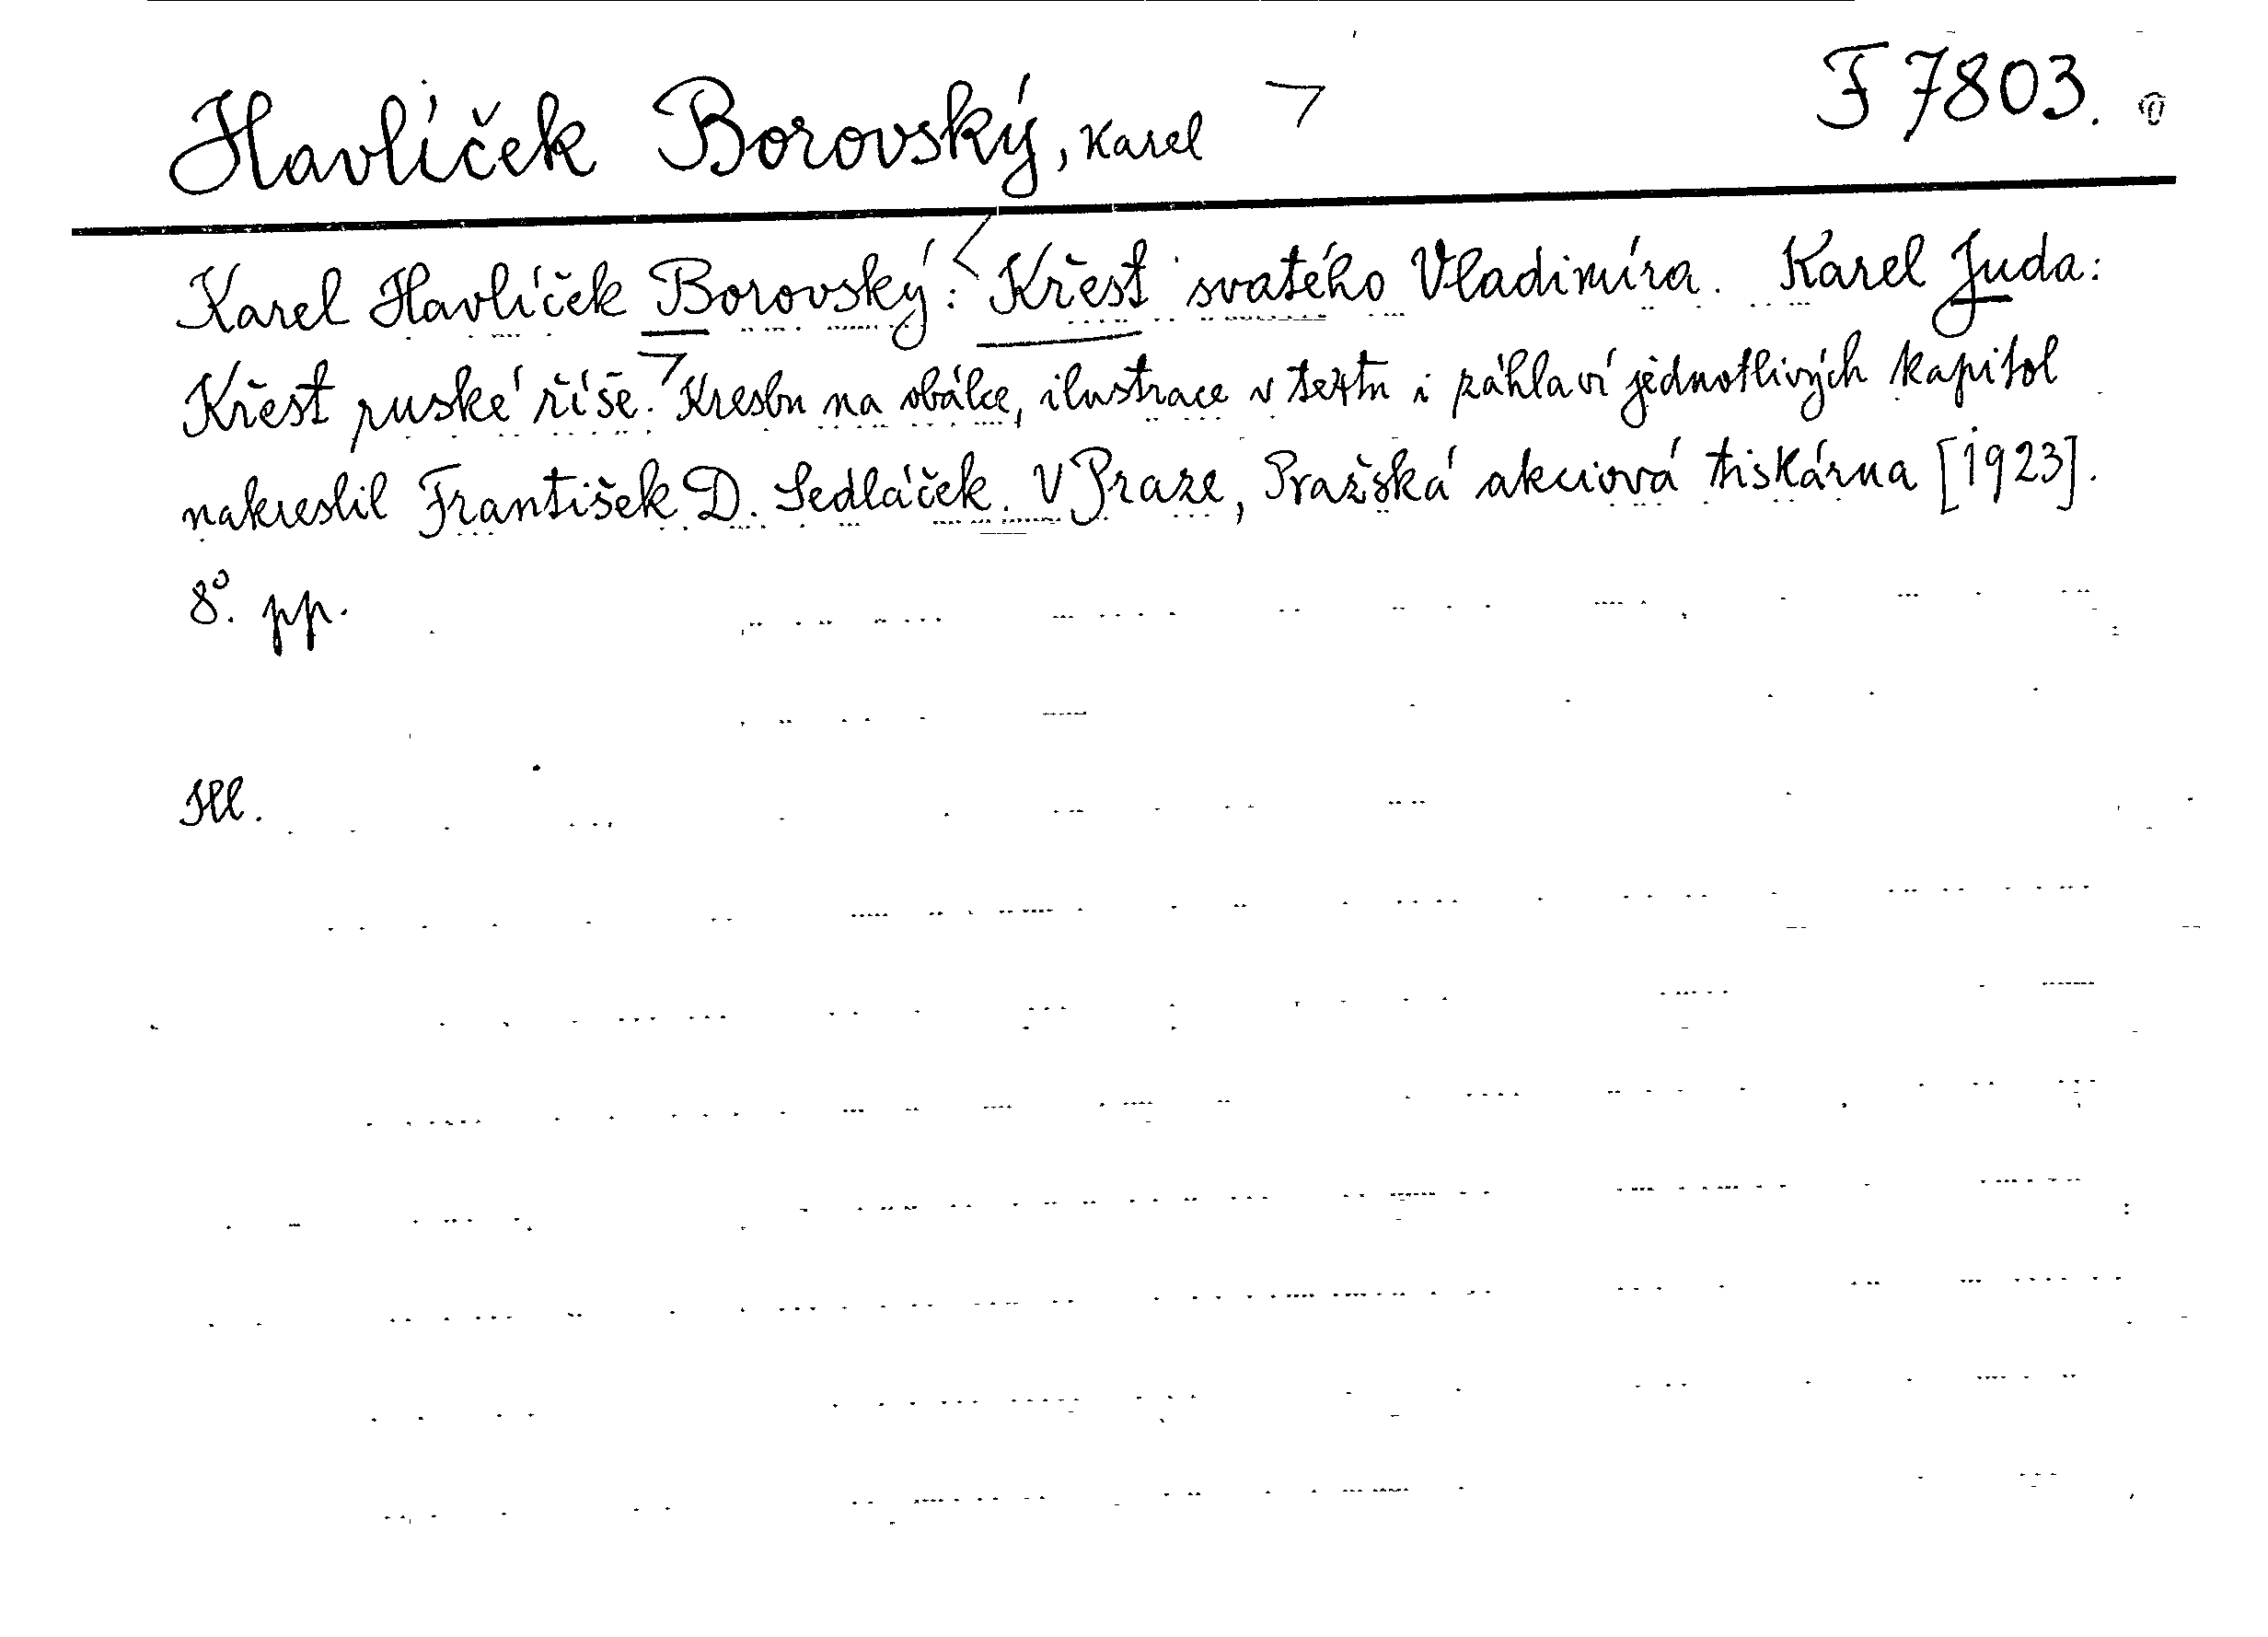 Havlíček Borovský, Karel F 7803.
Karel Havlíček Borovský: Křest svatého Vladimíra. Karel Juda:
Křest ruské říše. Kresbu na obálce, ilustrace v textu i záhlaví jednotlivých kapitol
nakreslil František D. Sedláček. V Praze, Pražská akciová tiskárna [1923].
8°. pp.
Ill.